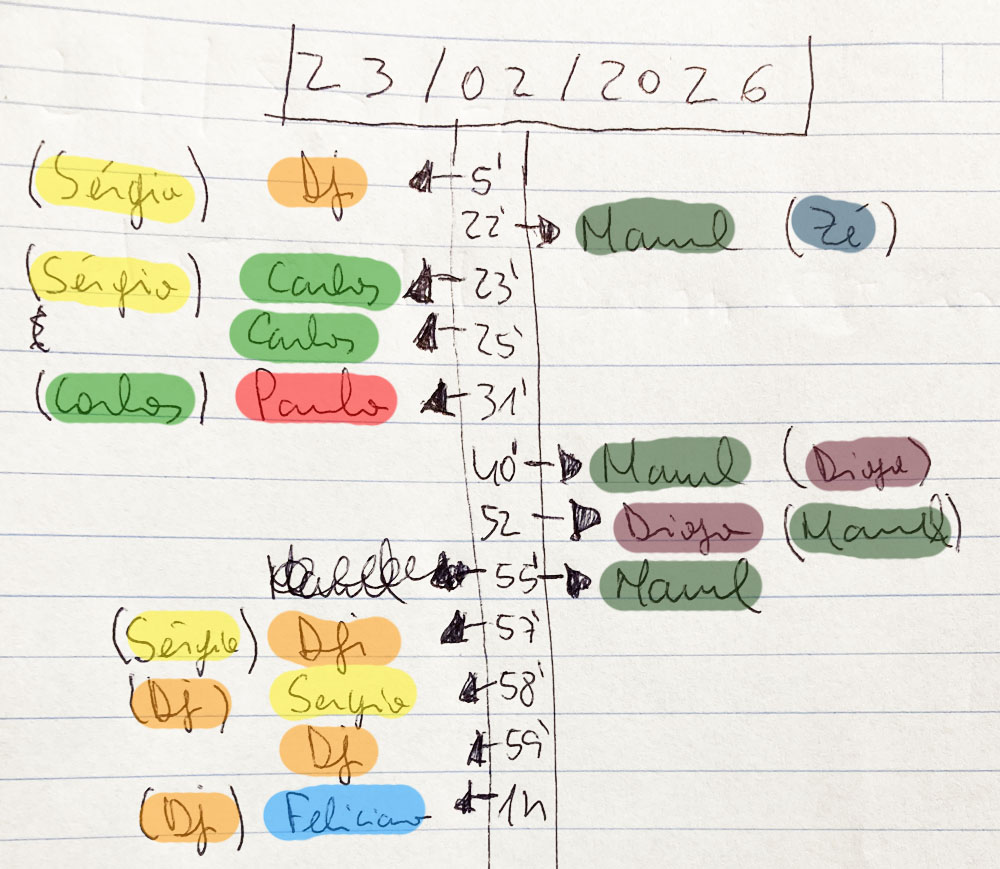 23/02/2026
(Sérgio) Dj 5'
22' Manel (Zé)
(Sérgio) Carlos 23'
Carlos 25'
(Carlos) Paulo 31'
40' Manel (Diogo)
52 Diogo (Manel)
55' Manel
(Sérgio) Dji 57'
(Dj) Sergio 58'
Dj 59'
(Dj) Feliciano 1h